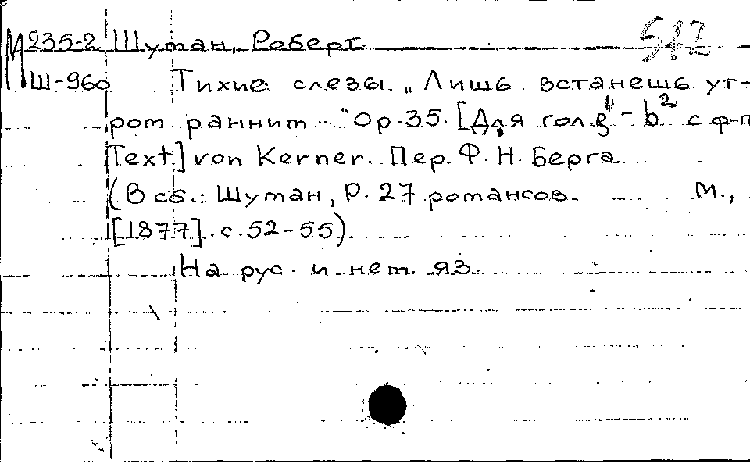 512
М 235-2 Шуман, Роберт
Ш-960 Тихие слезы. „Лишь встанешь ут-
ром ранним..." Op. 35. [Для гол. g¹ - b² с ф-п
Text] von Kerner. Пер. Ф. Н. Берга
(В сб.: Шуман, Р. 27 романсов. М.,
[1877]. с. 52-55)
На рус. и нем. яз.